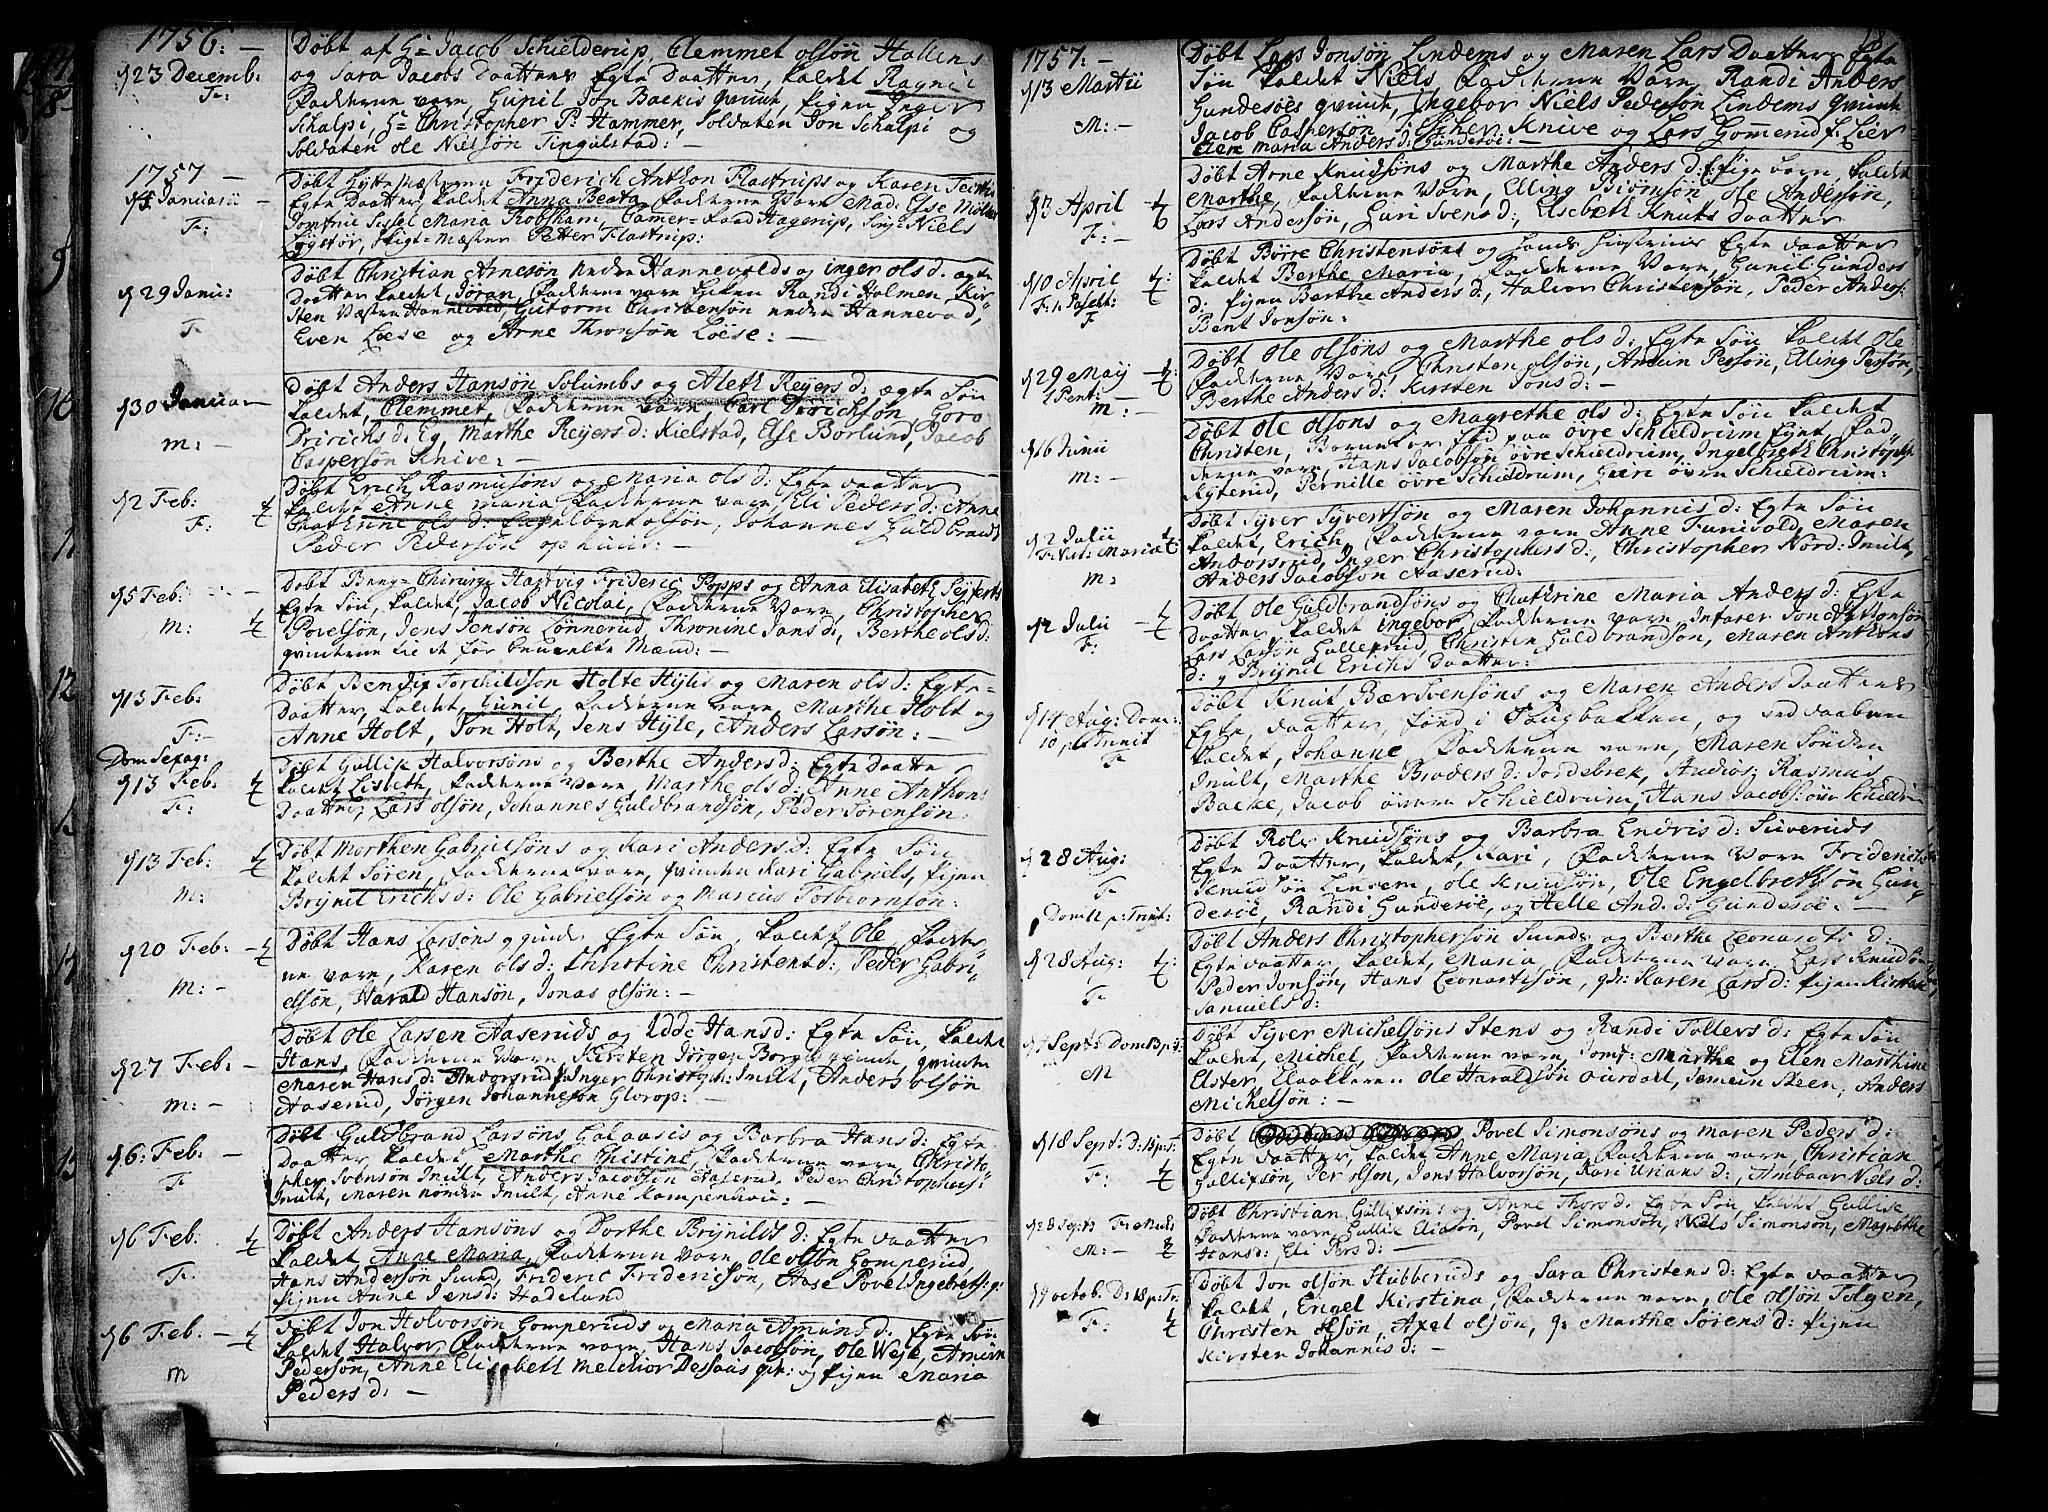 1756: —
d 23 Decemb:
F:
Døbt af Hr Jacob Schielderup, Clemmet olsøn Hallens
og Sara Jacobs Daatter Egte Daatter, kaldet Ragnil
Fadderne vare, Gunil Jon Backis qvinde, pigen Inger
Schalpi, Hr Christopher P: Hammer, Soldaten Jon Schalpi og
Soldaten ole Nielsøn Tingulstad: —
1757 —
Januarii —
F:
Døbt Hytte Mæsterens Friderich Anthon Flastrups og Karen
Egte Daatter, kaldet Anna Beata, Fadderne Vare Mad: Else Møller
Jomfrue Sissel Maria Robsham, Camer-Raad Hagerup, Sinjr Niels
Løgstør, Skigt-Mæster Petter Flastrup:
d 29 Janu:
F
Døbt Christian Arnesøn nedre Hannevolds og inger ols d. ægte
Daatter kaldet, Jøran, Fadderne vare Randi Holmen Kir-
sten Væstre Hannevold, Gutorm Christensøn nedre Hannevold,
Even Løese og Arne Thronsøn Løese: —
d 30 Januar —
m: —
Døbt Anders Hansøn Solumbs og Aleth Reyers d: ægte Søn
kaldet, Clemmet, Fadderne Vare, Carl Dirichsøn Goro
Dirichs d: Eg, Marthe Reyers d: Kielstad, Else Borlund, Jacob
Caspersøn Knive: —
d 2 Feb:
F:
Døbt Erich Rasmussøns og Maria ols d: Egte daatter
kaldet Anne maria Fadderne vare, Eli Peders d: Anne
Chathrine ols d: Engelbret olsøn, Johannes Guldbrands
Peder Pedersøn ophuus: —
d 5 Feb: — —
m:
Døbt Berg-Chirurgi Hartvig Frideric Popps og Anna Elisabeth Seyferts
Egte Søn, kaldet, Jacob Nicolai, Fadderne Vare, Christopher
Povelsøn, Jens Jensøn Lønnerud, Thronine Jans d:, Berthe ols d:
qvinderne til de før benevnte Mænd: —
d 13 Feb:
F: —
Døbt Bendix Torchildsøn Holte Hyles og Maren ols d: Egte
Daatter, kaldet, Gunil, Fadderne vare, Marthe Holt og
Anne Holt, Jon Holt, Jens Hyle, Anders Larsøn: —
Dom Sexag:
d 13 Feb.
F:
Døbt Gullik Halvorsøns og Berthe Anders d: Egte Daatter
kaldet Lisbeth, Fadderne Vare, Marthe ols d: Anne Anthons
Daatter, Lars olsøn, Johannes Guldbrandsøn, Peder Sørensøn:
d 13 Feb.
m:
Døbt Morthen Gabrielsøns og Kari Anders d: Egte Søn
kaldet Søren, Fadderne vare, qvinden Kari Gabriels, pigen
Brynil Erichs d: Ole Gabrielsøn og Marcus Torbiornsøn:
d 20 Feb: —
m: —
Døbt Hans Larsøns Egte Søn, kaldet Ole Fadder-
ne vare, Karen ols d: Christine Christens d:, Peder Gabri-
elsøn, Harald Hansøn, Jonas olsøn: —
d 27 Feb: —
m: —
Døbt Ole Larsen Aaseruds og Edde Hans d: Egte Søn, kaldet
Hans, Fadderne Vare, Kirsten Jørgen Borge qvinde, qvinden
Maren Hans d: Andorsrud, Inger Christoph: Inult, Anders olsøn
Aaserud, Jørgen Johannesøn Glorop: —
d 6: Feb: —
F
Døbt Guldbrand Larsøns Galaasis og Barbra Hans d: Egte
Daatter, kaldet Marthe Christine, Fadderne vare, Christo-
pher Svensøn Inult, Anders Jacobsøn Aaserud, Peder Christophersø
Inult, Maren norden Inult, Anne Kampenhau: —
d 6 Feb:
F:
Døbt Anders Hansøns og Dorthe Brynilds d: Egte daatter
kaldet, Anne Maria, Fadderne Vare, Ole olsøn Gomperud,
Hans Andersøn Sund, Frideric Fridericsøn, Aase Povel Ingebrets q:
pigen Anne Jens d: Hadeland
d 6 Feb: —
m
Døbt Jon Halvorsøn Gomperuds og Maria Amunds d: Egte Søn
kaldet, Halvor, Fadderne vare, Hans Jacobsøn, Ole Weje, Amun
Pedersøn, Anne Elisabeth Melchior Dessaus qv: og pigen Maria
Peders d: —
1757: —
d 13 Martii
M: —
Døbt Lars Jonsøn Lindems og Maren Lars Daatter Egte
Søn kaldet Niels, Fadderne Vare, Randi Anders
Gundesøes qvinde, Ingebor Niels Pedersøn Lindems qvinde
Jacob Caspersøn, Knive og Lars Gommerud f. Lier
Elen maria Anders d: Gundesøe: —
d 3 April
F: —
Døbt Arne Knudsøns og Marthe Anders d: pige barn, kaldet
Marthe, Fadderne Vare, Elling Biørnsøn, ole Andersøn,
Lars Andersøn, Guri Svens d:, Elsebeth Knuts Daatter
d 10 April
F: 1. Pascht:
F
Døbt Børre Christensøns og hands Hustrues Egte daatter
kaldet Berthe Maria, Fadderne Vare, Gunil Gunders
d: pigen Berthe Anders d:, Halvor Christensøn, Peder Anders:
Bent Jonsøn:
d 29 Maij
1 Pent: —
m: —
Døbt Ole olsøns og Marthe ols d: Egte Søn kaldet Ole
Fadderne Vare, Christen olsøn, Amun Persøn, Elling Persøn,
Berthe Anders d: Kirsten Jons d: —
d 16 Junii
m: —
Døbt Ole olsøns og Magrethe ols d: Egte Søn kaldet
Christen, Barnet er fød paa øvre Schieldrum Fad-
derne vare, Hans Jacobsøn øvre Schieldrum, Ingelbreth Christoph
Ryterud, Pernille øvre Schieldrum, Guri øvre Schieldrum:
d 2 Julii
F: Visit: Mariæ
m:
Døbt Syver Syvertsøn og Maren Johannis d: Egte Søn
kaldet, Erich, Fadderne vare Anne Funisald, Maren
Andorsrud, Inger Christophers d:, Christopher Nord: Inult,
Anders Jacobsøn Aaserud:
d 2 Julii —
F:
Døbt Ole Guldbrandsøns og Chathrine Maria Anders d: Egte
Daatter, kaldet Ingebor, Fadderne vare, Jon Aslaksøn
Lars Larsøn Gulleprud, Christen Guldbrandsøn, Maren Anthons
d: q Brynil Erichs Daatter:
d 14 Aug: Dom:
10 p: Trinit
F
Døbt Knut Bærsvensøns og Maren Anders Daatter
Egte, daatter, fød i Taugbakken, og ved daaben
kaldet, Johanne Fadderne vare, Maren Sønden
Inult, Marthe Braders d: Jordebrek, Rasmus
Backe, Jacob øvere Schieldrum, Hans Jacobs: øvre Schieldr
d 28 Aug:
F
Dom 12 p: Trinit:
Døbt Rolv Knudsøns og Barbra Endris d: Suveruds
Egte Daatter, kaldet, Kari, Fadderne Vare Friderich
Knud søn Linsem, ole Knudsøn, Ole Engelbrethsøn Gun-
desøe, Randi Gundesøe, og Helle And. d: Gundesøe: —
d 28 Aug:
F
Døbt Anders Christophersøn Sunds og Berthe Leonardts d:
Egte daatter, kaldet, Maria, Fadderne Vare, Lars Knudsø
Peder Jonsøn, Hans Leonartsøn, qv: Karen Lars d: pigen Kirsten
Samuels d:
Sept: Dom 13 p: T:
M
Døbt Syver Michelsøns Stens og Randi Tollevs d: Egte Søn
kaldet, Michel, Fadderne vare, Jomf: Marthe og Elen Marthine
Elster, Klokkeren Ole Haraldsøn ourdall, Semein Steen, Anders
Michelsøn: —
d 18 Sept: D: 15 p: T:
F:
Døbt Povel Simonsøns og Maren Peders d:
Egte daatter, kaldet Anne Maria, Fadderne vare, Christian
Gullixsøn, Per olsøn, Jens Halvorsøn, Kari Urians d:, Ambaar Niels d:
d 28 Sept: F: Mich:
M: —
Døbt Christian Gullixsøn: og Anne Thors d: Egte Søn, kaldet Gullise
Fadderne vare, Gullise Eliasøn, Povel Simonsøn, Niels Simonsøn, Magrethe
Hans d: Eli Pers d: —
d 9 octob. D: 18 p: Tr:
F:
Døbt Jon olsøn Stubberuds og Sara Christens d: Egte daatter
kaldet, Engel Kirstina, Fadderne vare, Ole olsøn Tolgen,
Christen olsøn, Axel olsøn, q: Marthe Sørens d: pigen
Kirsten Johannis d: —